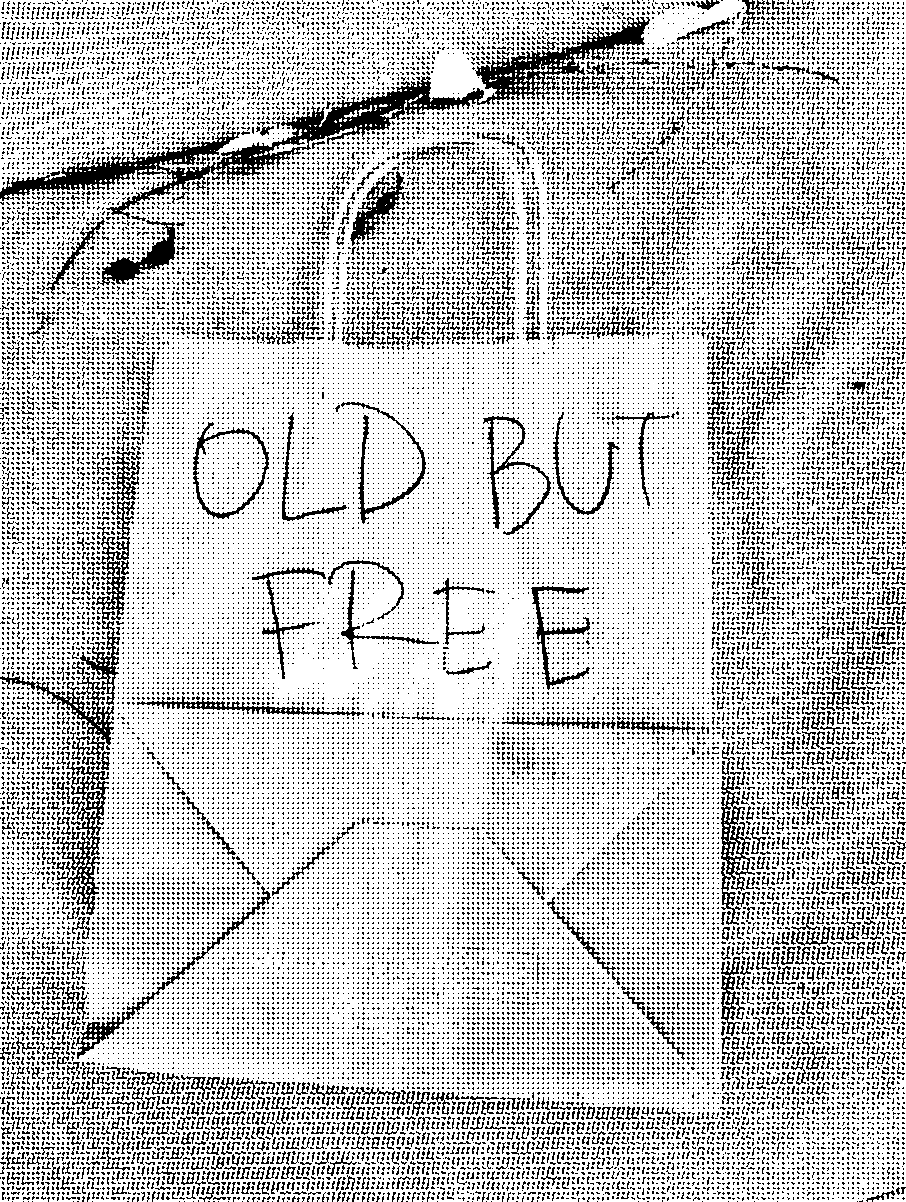 OLD BUT
FREE